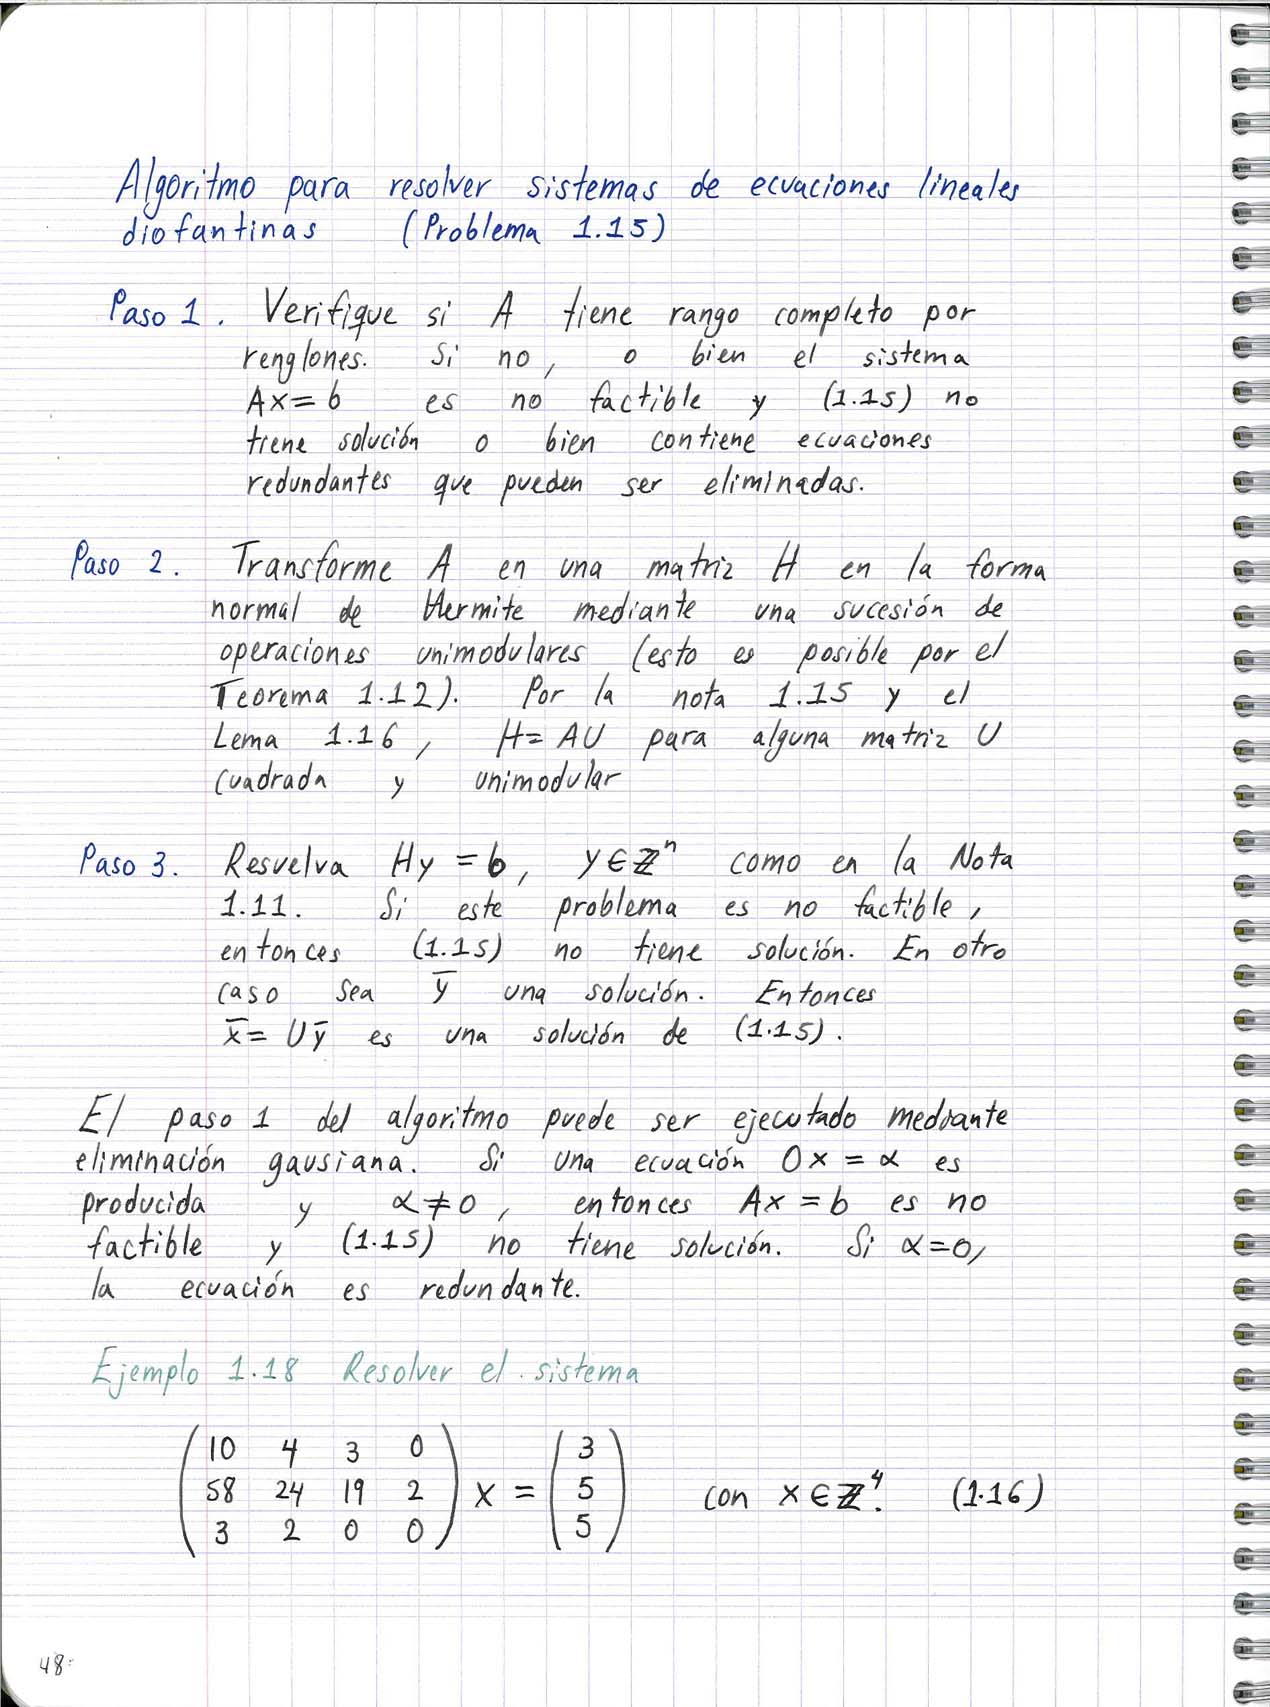 Algoritmo para resolver sistemas de ecuaciones lineales
diofantinas (Problema 1.15)
Paso 1. Verifique si A tiene rango completo por
renglones. Si no, o bien el sistema
Ax = b es no factible y (1.15) no
tiene solución o bien contiene ecuaciones
redundantes que pueden ser eliminadas.
Paso 2. Transforme A en una matriz H en la forma
normal de Hermite mediante una sucesión de
operaciones unimodulares (esto es posible por el
Teorema 1.12). Por la nota 1.15 y el
Lema 1.16, H = AU para alguna matriz U
cuadrada y unimodular
Paso 3. Resuelva Hy = b, y ∈ ℤⁿ como en la Nota
1.11. Si este problema es no factible,
entonces (1.15) no tiene solución. En otro
caso sea ȳ una solución. Entonces
x̄ = Uȳ es una solución de (1.15).
El paso 1 del algoritmo puede ser ejecutado mediante
eliminación gausiana. Si una ecuación 0x = α es
producida y α ≠ 0, entonces Ax = b es no
factible y (1.15) no tiene solución. Si α = 0,
la ecuación es redundante.
Ejemplo 1.18 Resolver el sistema
10 4 3 0 3
58 24 19 2 x = 5 con x ∈ ℤ⁴. (1.16)
3 2 0 0 5
48